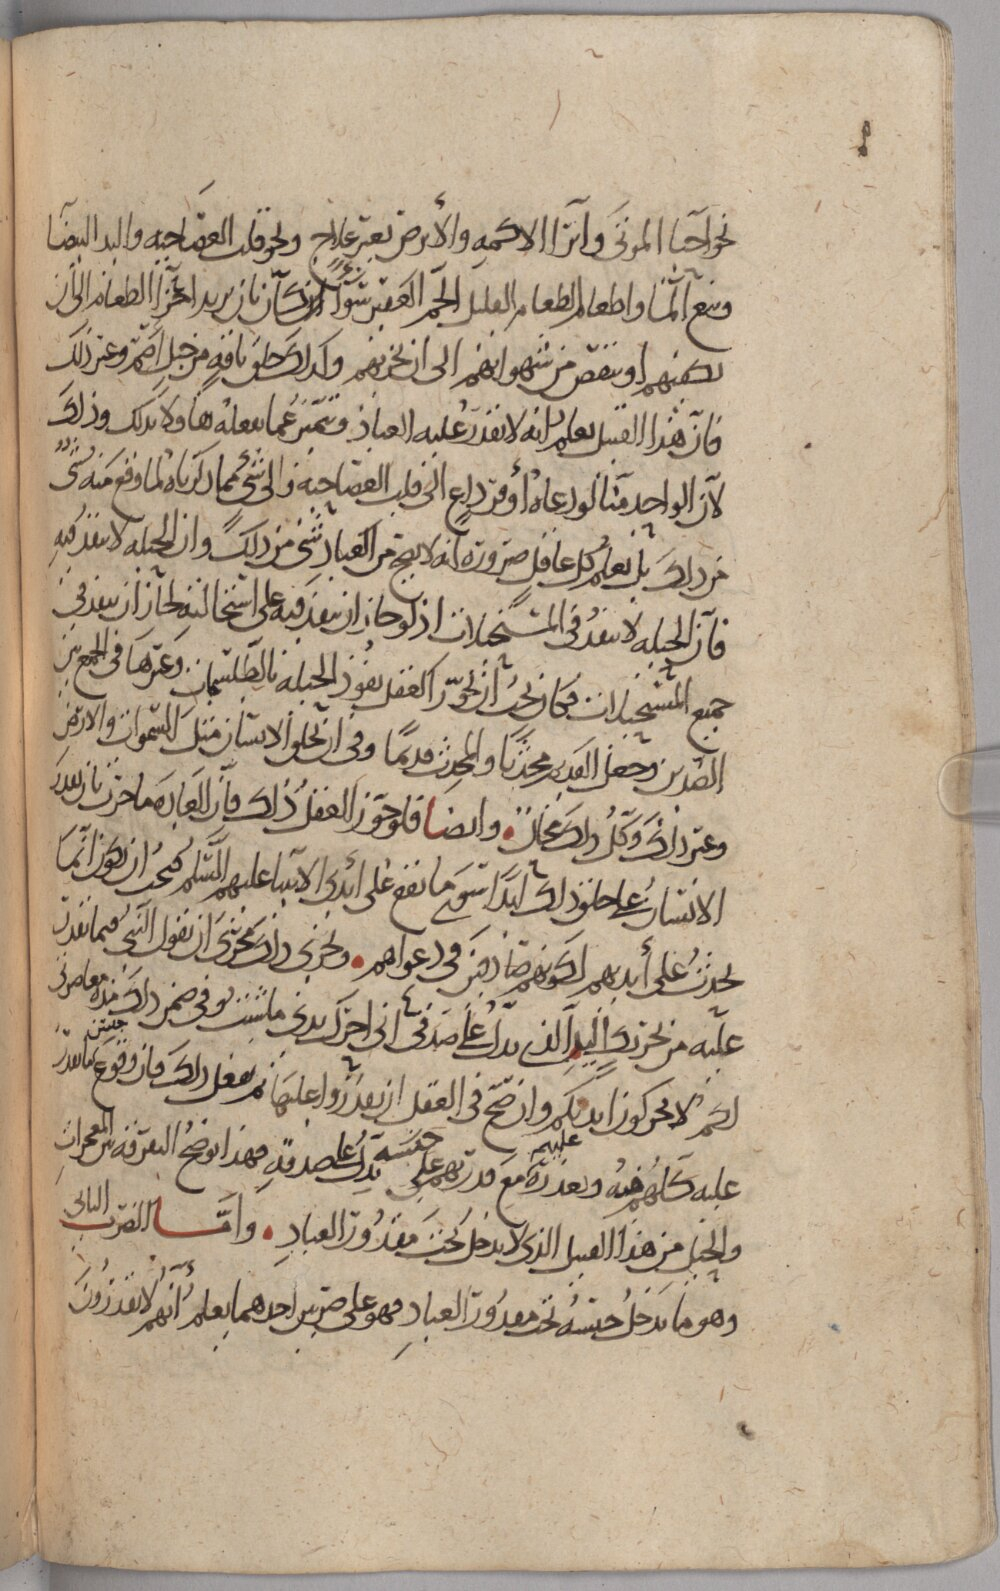 نحو احيا الموتى وابرا الاكمه والابرص بغير علاج ونحو قلب العصا حيه واليد البيضا
ونبع الما واطعام الطعام القليل الجم الغفير سوا كان بان يزيد اجزا الطعام الى ان
يكفيهم او ينقص من شهواتهم الى ان يجزيهم وكذلك خلق ناقه من جبل اصم وغير ذلك
فان هذا القبيل يعلم بانه لا تقدر عليه العباد وتميز عما يفعله هنا ولا بد لك وذلك
لان الواحد منا لو دعاه اوفر داع الى قلب العصا حيه والى شي مما ذكرناه لما وقع منه شي
من ذلك بل يعلم كل عاقل ضروره انه لا يصح من العباد شي من ذلك وان الحيله لا تنفذ فيه
فان الحيله لا تنفذ في المستحيلات اذ لو جاز ان تنفذ فيه على استحالته لجاز ان تنفذ في
جميع المستحيلات فكان يجب ان يجوز العقل نفوذ الحيله بالطلسمات وغيرها في الجمع بين
الضدين وجعل القديم محدثا والمحدث قديما وفي ان يخلق الانسان مثل السموات والارض
وغير ذلك وكل ذلك محال وايضا فلو جوز العقل ذلك فان العاده ما جرت بان يقدر
الانسان على خلق ذلك ابدا سوى ما يقع على ايدي الانبيا عليهم السلم فيجب ان يكون انما
يحدث على ايديهم لكونهم صادقين في دعواهم ويجري ذلك مجرى ان يقول النبي فيما تقدرت
عليه من تحريك اليد الذي يدل على صدقي اني احرك يدي ما شيت وفي ضمن ذلك
لكم لا تحركون ايديكم وان صح في العقل ان تقدروا عليها ثم يفعل ذلك فان وقوع
عليه كلهم فيه وتعذره عليهم مع قدرتهم على جنسه يدل على صدقه فهذا يوضح التفرقه بين المعجزات
والحيل من هذا القبيل الذي لا يدخل تحت مقدور العباد واما الضرب الثاني
وهو ما يدخل جنسه تحت مقدور العباد فهو على ضربين احدهما يعلم انهم لا يقدرون